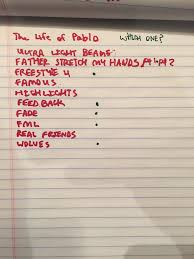 The Life of Pablo WHICH ONE?
ULTRA LIGHT BEAMS
FATHER STRETCH MY HANDS pt1pt2
FREESTYLE 4
FAMOUS
HIGHLIGHTS
FEEDBACK
FADE
FML
REAL FRIENDS
WOLVES